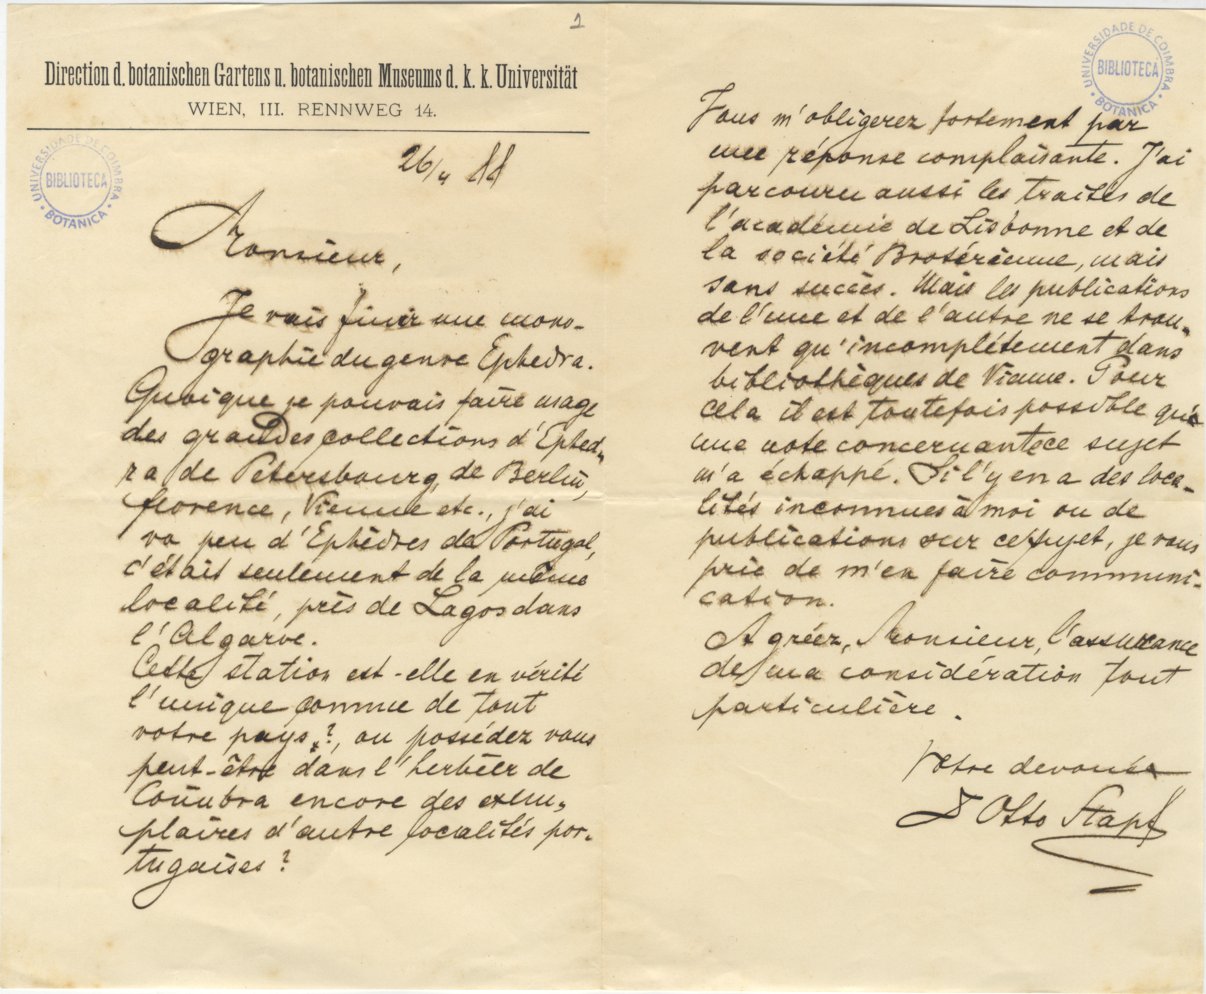 1
Direction d. botanischen Gartens u. botanischen Museums d. k. k. Universität
WIEN, III. RENNWEG 14.
UNIVERSIDADE DE COIMBRA
BIBLIOTECA
BOTANICA
26/4 88
Monsieur,
Je vais finir une mono-
graphie du genre Ephedra.
Quoique je pouvais faire usage
des grandes collections d'Ephed-
ra de Petersbourg, de Berlin,
florence, Vienne etc., j'ai
vu peu d'Ephèdres de Portugal,
c'était seulement de la même
localité, près de Lagos dans
l'Algarve.
Cette station est-elle en vérité
l'unique connue de tout
votre pays?, ou possédez vous
peut-être dans l'herbier de
Coimbra encore des exem-
plaires d'autre localités por-
tugaises?
UNIVERSIDADE DE COIMBRA
BIBLIOTECA
BOTANICA
Vous m'obligerez fortement par
une réponse complaisante. J'ai
parcouru aussi les traites de
l'académie de Lisbonne et de
la société Brotérienne, mais
sans succès. Mais les publications
de l'une et de l'autre ne se trou-
vent qu'incomplètement dans
bibliothèques de Vienne. Pour
cela il est toutefois possible qu'
une note concernante ce sujet
m'a échappé. Si l'y en a des loca-
lités inconnues à moi ou de
publications sur ce sujet, je vous
prie de m'en faire communi-
cation.
Agréez, Monsieur, l'assurance
de ma considération tout
particulière.
Votre devoué
Dr Otto Stapf